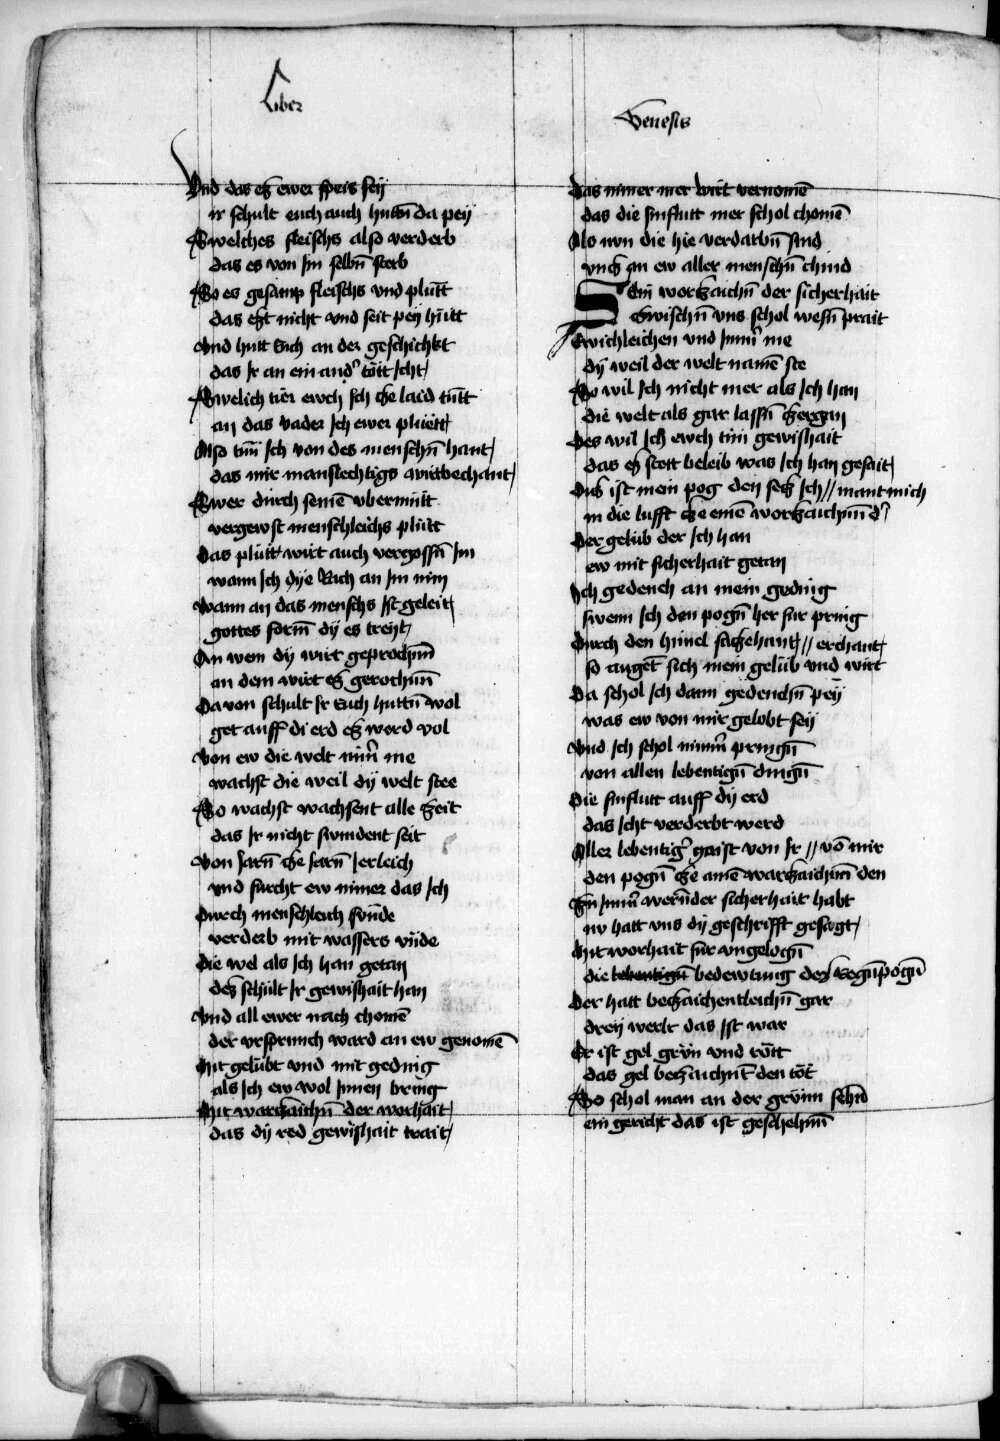 Liber
Genesis
Vnd das eʒ ewer speis seÿ
ir schult euch auch huttñ da peÿ
Swelches fleischs also verderb
das es von Im selbñ sterb
So es gesamp fleischs vnd plutt
das eʒt nicht vnd seit peÿ hütt
Vnd hutt Euch an der geschichkt
das Ir an ein and' tött Icht
Swelich tier ewch Ich ʒe laid tutt
an das vader Ich ewer pluett
Also tun Ich von des menschñ hant
das mir manslechtigs wirt bechant
Swer durch seinē vbermütt
vergewst menschleichs plutt
Das plutt wirt auch vergossñ Im
wann Ich dÿe Rach an Im nim
Wann an das menschs Ist geleit
gottes form dÿ es treyt
An wem dÿ wirt geprochñ
an dem wirt eʒ gerochñ
Da von schult Ir Euch huttñ wol
get auff di erd eʒ werd vol
Von ew die welt nim̃ me
wachst die weil dÿ welt stee
So wachst wachsent alle ʒeit
das Ir nicht swindent seit
Von Iarñ ʒe Iarñ Ierleich
vnd furcht ew nimer das Ich
Durch menschleich sünde
verderb mit wassers vnde
Die wel als Ich han getan
des schült Ir gewishait han
Vnd all ewer nach chomē
der vrsprinch ward an ew genomē
Mit gelubt vnd mit geding
als Ich ew wol Innen bring
Mit warʒaichñ der worhait
das dÿ red gewishait trait
Das nimer mer wirt vernomē
das die sinflutt mer schol chomē
Also nvn die hie verdarbñ sind
vnd an ew aller menschñ chind
Sein worʒaichñ der sicherhait
ʒwischñ vns schol wesñ prait
Ewichleichen vnd Imm' me
dÿ weil der welt namē ste
So wil Ich nicht mer als Ich han
die welt als gar lassñ ʒergan
Des wil Ich ewch tun gewishait
das eʒ stett beleib was Ich han gesait
Duʒ ist mein pog den seʒ Ich // mant mich
in die lufft ʒe einē worʒaichñ d'
Der gelub der Ich han
ew mit sicherhait getan
Ich gedench an mein geding
swenn Ich den pogñ her fur pring
Durch den himel saʒehant // erchant
so auget sich mein gelub vnd wirt
Da schol Ich dann gedenchñ peÿ
was ew von mir gelobt seÿ
Vnd Ich schol nimm' pringñ
von allen lebentigñ dingñ
Die sinflutt auff dÿ erd
das Icht verderbt werd
Aller lebentig' gaist von Ir // vō mir
den pogñ ʒe ainē warʒaichñ den
ʒu Imm' werñder sicherhait habt
nv hatt vns dÿ geschrifft gesagt
Mit worhait für vngelogñ
die bedewtung des Regñpogñ
Der hatt beʒaichentleichñ gar
dreÿ werlt das Ist war
Er ist gel grün vnd rött
das gel beʒaichnt den töt
So schol man an der grünn sehñ
ein gericht das ist geschehñ